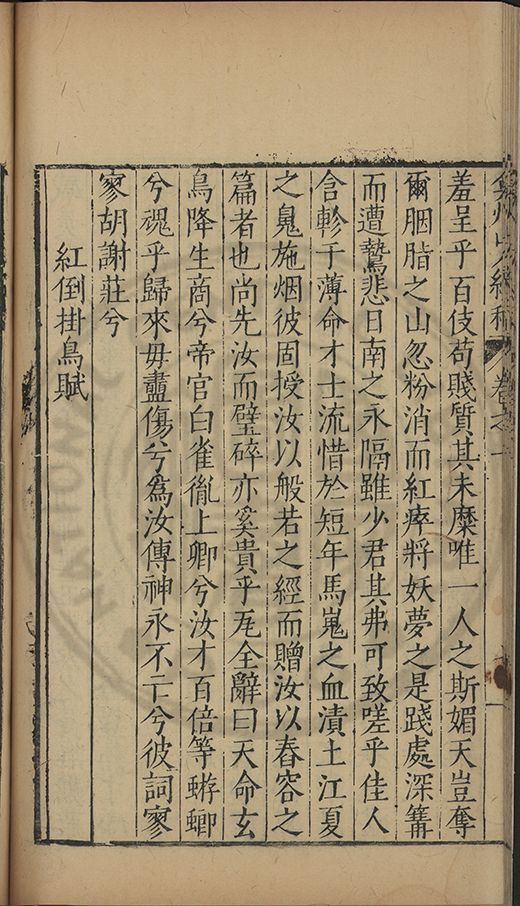 弇州山人續稿 卷之一
羞呈乎百伎苟賤質其未糜唯一人之斯媚天豈奪
爾胭脂之山忽粉消而紅瘁將妖夢之是踐處深籌
而遭鷙悲日南之永隔雖少君其弗可致嗟乎佳人
含軫于薄命才士流惜於短年馬嵬之血漬土江夏
之鳧施烟彼固授汝以般若之經而贈汝以舂容之
篇者也尚先汝而璧碎亦奚貴乎瓦全辭曰天命玄
鳥降生商兮帝官白雀胤上卿兮汝才百倍等蝣蜋
兮魂乎歸來毋盡傷兮為汝傳神永不亡兮彼詞寥
寥胡謝莊兮
紅倒掛鳥賦